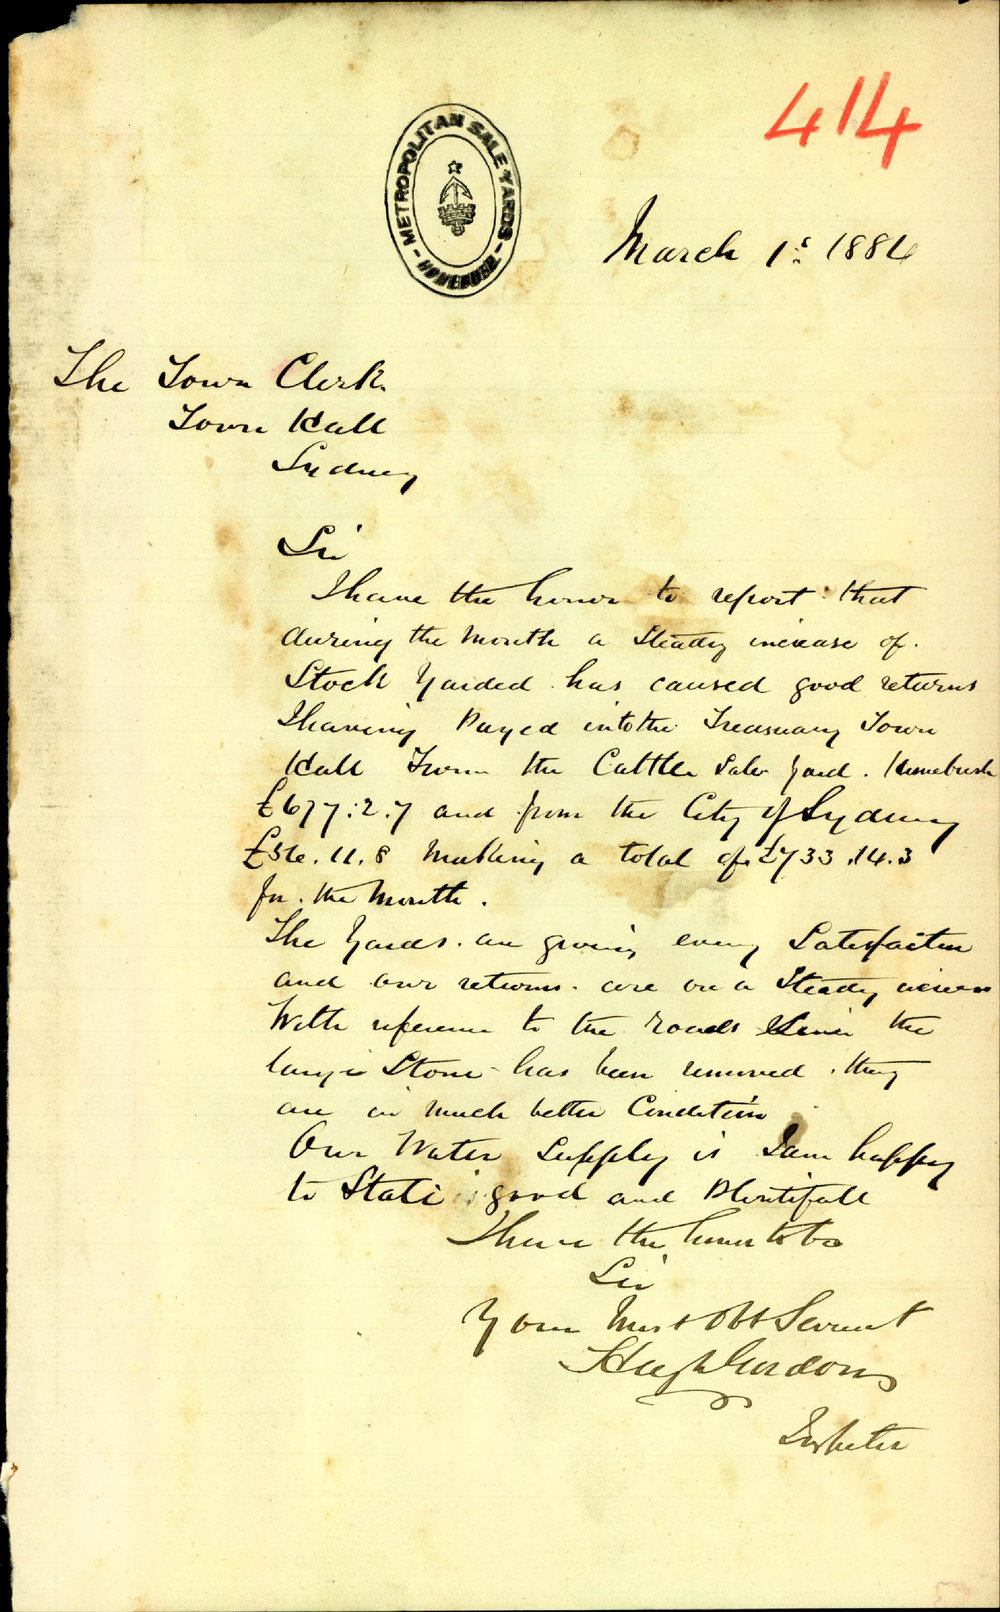 414
METROPOLITAN SALE YARDS
HOMEBUSH
March 1st 1884
The Town Clerk
Town Hall
Sydney
Sir
I have the honor to report that
during the Month a Steady increase of
Stock Yarded has caused good returns
I having Payed into the Treasuary Town
Hall From the Cattle Sale Yard. Homebush
£677.2.7 and from the City of Sydney
£56.11.8 Making a total of £733.14.3
for the Month.
The Yards are giving every Satisfaction
and our returns are on a Steady
With reference to the roads Since the
large Stone has been removed they
are in much better Condition
Our Water Supply is I am happy
to State is good and Plentifull
I have the honor to be
Sir
Your Most Obt Servant
Hugh Gordon
Inspector